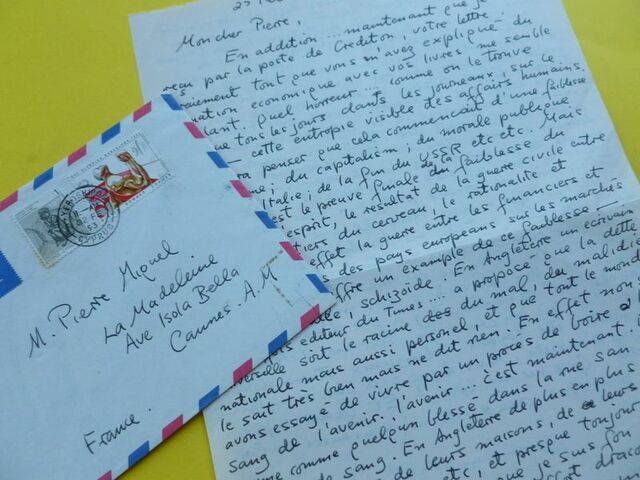 M. Pierre Miquel
La Madeleine
Ave Isola Bella
Cannes. A.M
France.
CYPRUS
27
Mon cher Pierre,
En addition ... maintenant que je
reçu par la poste de Crediton, votre lettre
vraiement tout que vous m'avez expliqué du
nation economique avec vos livres me semble
lant. Quel horreur ... comme on le trouve
que tous les jours dans les journeaux, sur le
cette entropie visible des affairs humains.
penser que cela commencait d'une faiblesse
me; du capitalism; du morale publique
Italie; de la fin du USSR etc etc. Mais
est le preuve finale de la faiblesse du
l'esprit, le résultat de la guerre civile entre
tiers du cerveau, le rationalité et
effet la guerre entre les financiers et
des pays europeans sur les marchés
offre un example de ce faiblesse
schizoïde. En Angleterre un écrivain
editeur du Times ... a proposé que la dette
verselle soit le racine du mal, du maladie
nationale mais aussi personel, et que tout le monde
le sait très bien mais ne dit rien. En effet nous
avons essayé de vivre par un proces de boire
sang de l'avenir. l'avenir ... c'est maintenant
comme quelqun blessé dans la rue san
de sang. En Angleterre de plus en plus
de leurs maisons, de leurs
etc, et presque toujours
que je suis fou